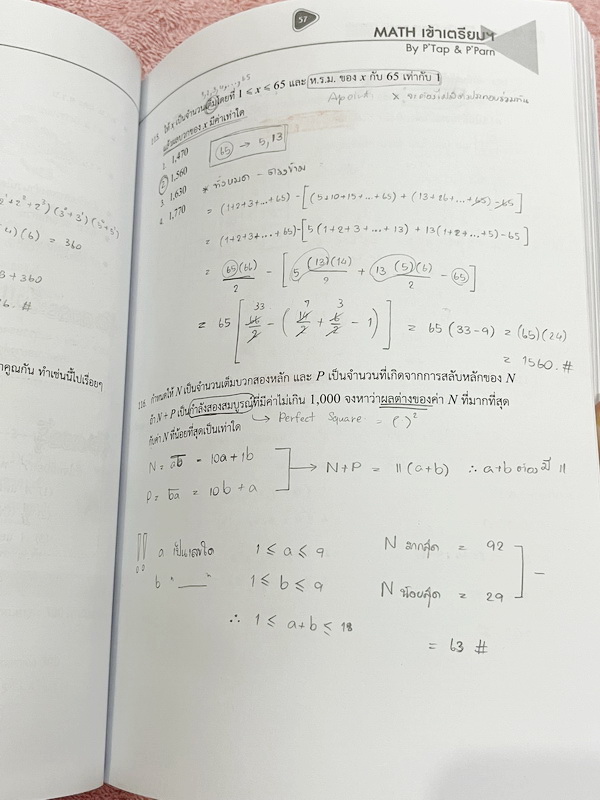 57
MATH เข้าเตรียมฯ
By P'Tap & P'Parn
115 ให้ x เป็นจำนวนเต็มโดยที่ 1 ≤ x ≤ 65 และ ห.ร.ม. ของ x กับ 65 เท่ากับ 1
ผลบวกของ x มีค่าเท่าใด
65 → 5, 13
1. 1,470
2. 1,560
3. 1,630
4. 1,770
* ทั้งหมด - ตรงข้าม
= (1+2+3+...+65) - [(5+10+15+...+65) + (13+26+...+65) - 65]
= (1+2+3+...+65) - [5(1+2+3+...+13) + 13(1+2+...+5) - 65]
= 65(66)/2 - [5(13)(14)/2 + 13(5)(6)/2 - 65]
= 65 [66/2 - (14/2 + 6/2 - 1)] = 65(33-9) = (65)(24)
33 7 3
= 1560. #
116 กำหนดให้ N เป็นจำนวนเต็มบวกสองหลัก และ P เป็นจำนวนที่เกิดจากการสลับหลักของ N
ถ้า N + P เป็นกำลังสองสมบูรณ์ที่มีค่าไม่เกิน 1,000 จงหาว่าผลต่างของค่า N ที่มากที่สุด
กับค่า N ที่น้อยที่สุดเป็นเท่าใด
↳ Perfect Square = ( )²
N = ab = 10a + 1b
→ N+P = 11(a+b) ∴ a+b ต้องมี 11
P = ba = 10b + a
!! a เป็นเลขโดด 1 ≤ a ≤ 9 N มากสุด = 92
b " ____ " 1 ≤ b ≤ 9 N น้อยสุด = 29
∴ 1 ≤ a+b ≤ 18
= 63 #
(6) = 360
+ 360
#
คูณกัน ทำเช่นนี้ไปเรื่อยๆ